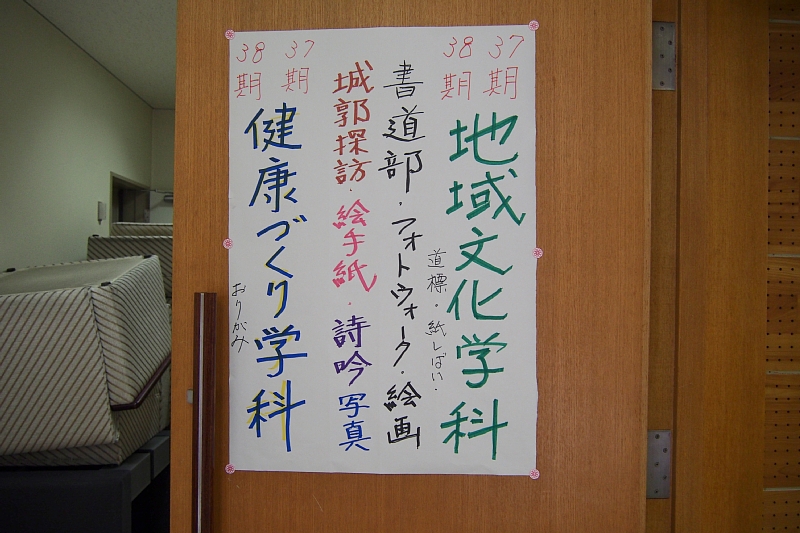 37期 38期
地域文化学科
道標・紙しばい・
書道部・フォトウォーク・絵画
城郭探訪・絵手紙・詩吟 写真
37期 38期
健康づくり学科
おりがみ